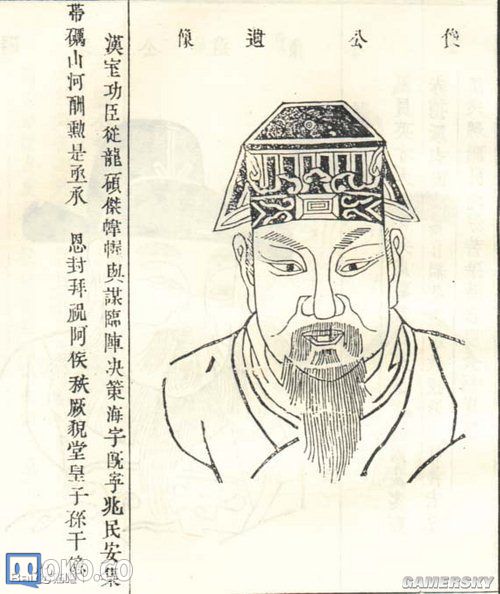 公遺像
漢室功臣從龍碩傑幃幄與謀臨陣决策海宇既寧兆民安集
帶礪山河酬勳是亟承 恩封拜祝阿侯秩厥貌堂皇子孫千億
GAMERSKY